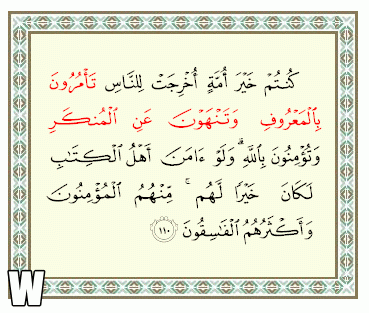 كُنتُمْ خَيْرَ أُمَّةٍ أُخْرِجَتْ لِلنَّاسِ تَأْمُرُونَ
بِٱلْمَعْرُوفِ وَتَنْهَوْنَ عَنِ ٱلْمُنكَرِ
وَتُؤْمِنُونَ بِٱللَّهِ ۗ وَلَوْ ءَامَنَ أَهْلُ ٱلْكِتَٰبِ
لَكَانَ خَيْرًا لَّهُم ۚ مِّنْهُمُ ٱلْمُؤْمِنُونَ
وَأَكْثَرُهُمُ ٱلْفَٰسِقُونَ ١١٠
W